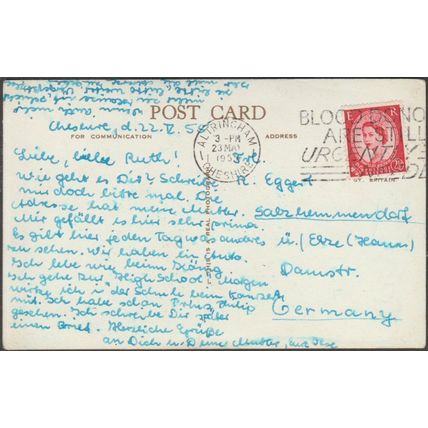 POST CARD
FOR COMMUNICATION
ADDRESS
ALTRINCHAM
3 - PM
23 MAY
195
CHESHIRE
BLOOD
NO
ARE STILL
URGENTLY
E R
GT. BRITAIN
THIS IS A REAL PHOTO
Cheshire, d. 22. V. 5
Liebe, liebe Ruth!
Wie geht es Dir? Schreibe
mir doch bitte mal, die
Adresse hat meine Mutter.
Mir gefällt es hier sehr prima
Es gibt hier jeden Tag was andres
zu sehen. Wir haben ein Auto.
Ich lebe wie beim König
Ich gehe zur High School. Morgen
wirke ich i/ der Schule beim Konzert
mit. Ich habe schon Prinz Philip
gesehen. Ich schreibe Dir später
einen Brief. Herzliche Grüße
an Dich u. Deine Mutter, eure Ilse
Frl.
R. Eggert
Salzhemmendorf
ü/ Elze (Hann)
Damstr.
Germany